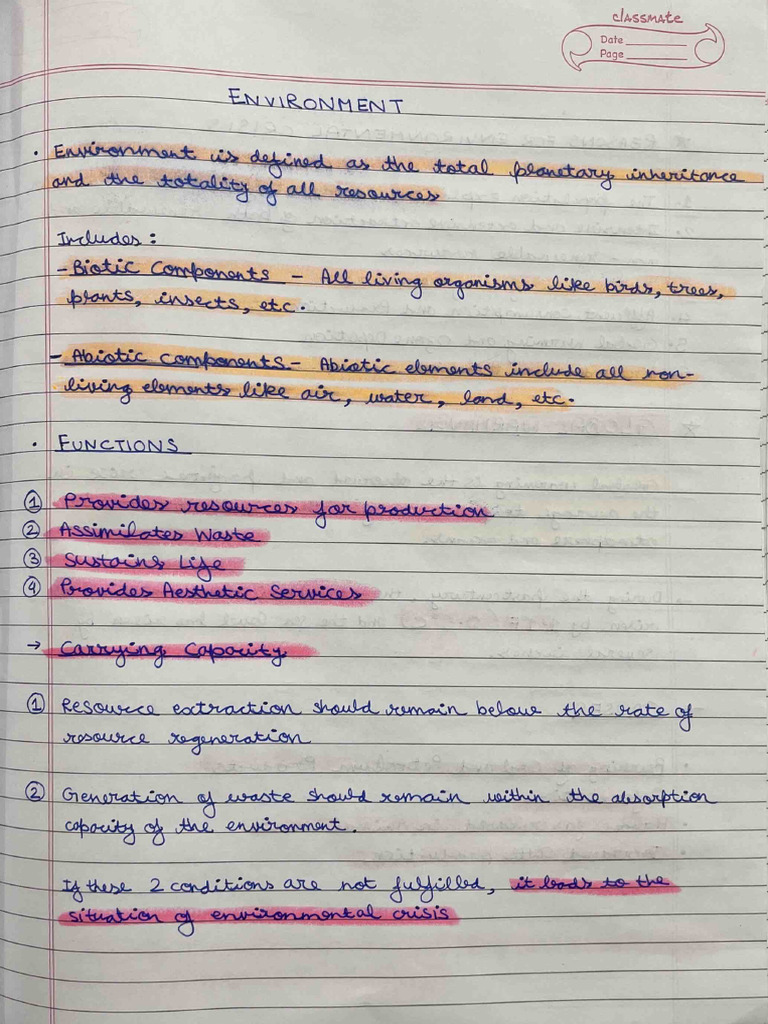 classmate
Date
Page
ENVIRONMENT
• Environment is defined as the total planetary inheritance
and the totality of all resources
Includes:
- Biotic Components - All living organisms like birds, trees,
plants, insects, etc.
- Abiotic components - Abiotic elements include all non-
living elements like air, water, land, etc.
• FUNCTIONS
① Provides resources for production
② Assimilates Waste
③ Sustains Life
④ Provides Aesthetic Services
→ Carrying Capacity
① Resource extraction should remain below the rate of
resource regeneration
② Generation of waste should remain within the absorption
capacity of the environment.
If these 2 conditions are not fulfilled, it leads to the
situation of environmental crisis